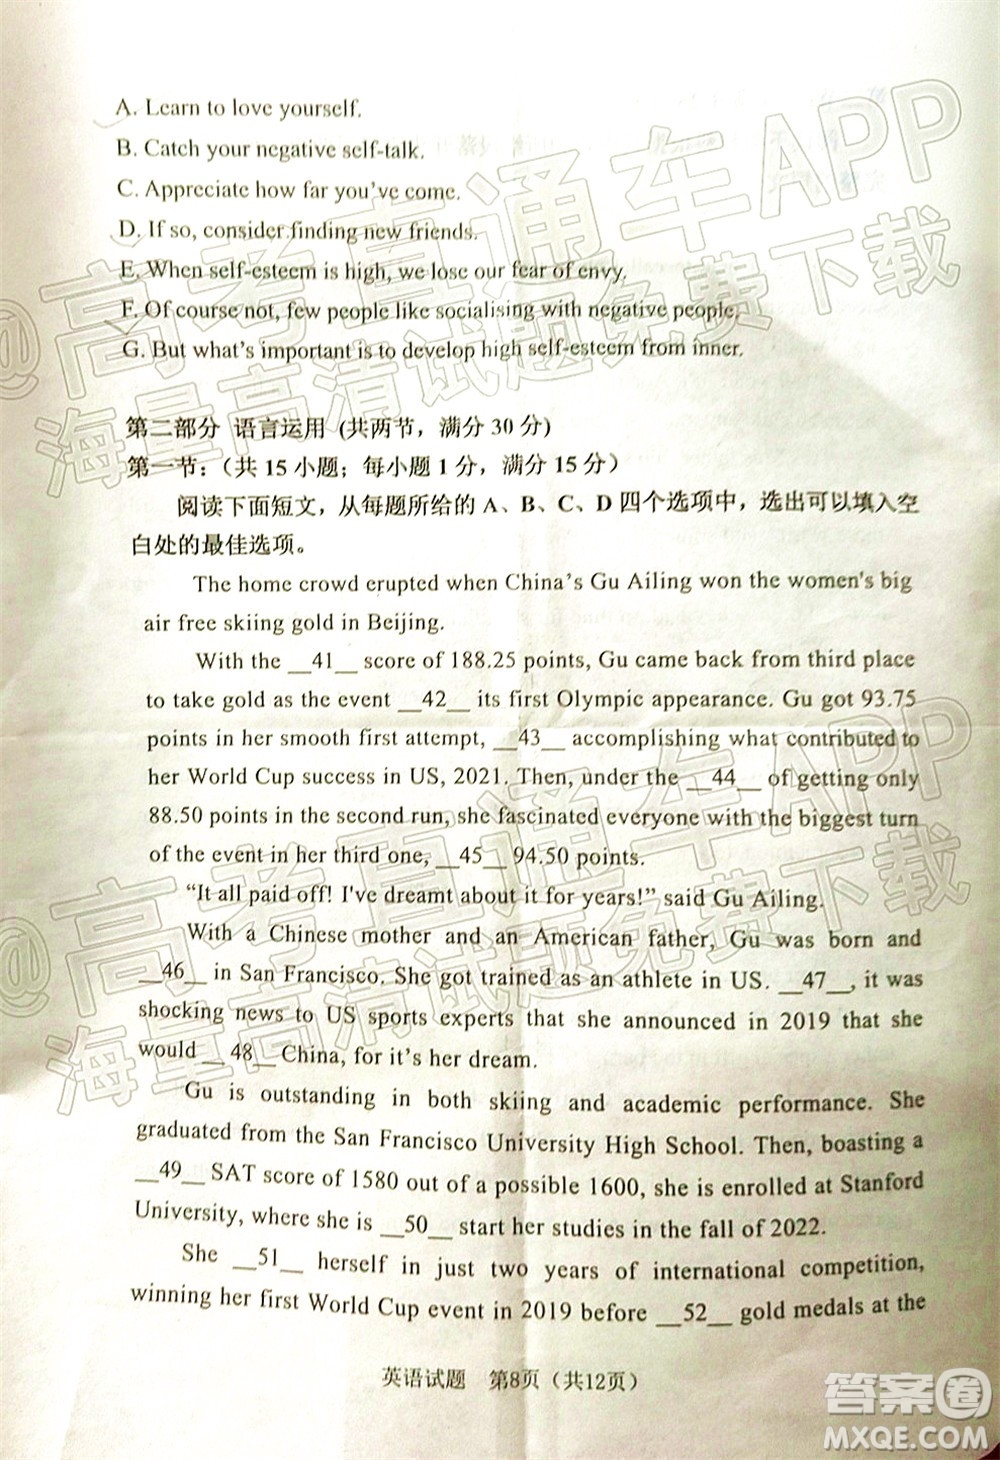 A. Learn to love yourself.
B. Catch your negative self-talk.
C. Appreciate how far you've come.
D. If so, consider finding new friends.
E. When self-esteem is high, we lose our fear of envy.
F. Of course not, few people like socialising with negative people.
G. But what's important is to develop high self-esteem from inner.
第二部分 语言运用 (共两节，满分 30 分)
第一节：（共 15 小题；每小题 1 分，满分 15 分）
阅读下面短文，从每题所给的 A、B、C、D 四个选项中，选出可以填入空
白处的最佳选项。
The home crowd erupted when China's Gu Ailing won the women's big
air free skiing gold in Beijing.
With the __41__ score of 188.25 points, Gu came back from third place
to take gold as the event __42__ its first Olympic appearance. Gu got 93.75
points in her smooth first attempt, __43__ accomplishing what contributed to
her World Cup success in US, 2021. Then, under the __44__ of getting only
88.50 points in the second run, she fascinated everyone with the biggest turn
of the event in her third one, __45__ 94.50 points.
“It all paid off! I've dreamt about it for years!” said Gu Ailing.
With a Chinese mother and an American father, Gu was born and
__46__ in San Francisco. She got trained as an athlete in US. __47__, it was
shocking news to US sports experts that she announced in 2019 that she
would __48__ China, for it's her dream.
Gu is outstanding in both skiing and academic performance. She
graduated from the San Francisco University High School. Then, boasting a
__49__ SAT score of 1580 out of a possible 1600, she is enrolled at Stanford
University, where she is __50__ start her studies in the fall of 2022.
She __51__ herself in just two years of international competition,
winning her first World Cup event in 2019 before __52__ gold medals at the
英语试题 第8页（共12页）
@高考直通车APP
海量高清试题免费下载
@高考直通车APP
海量高清试题免费下载
答案圈
MXQE.COM